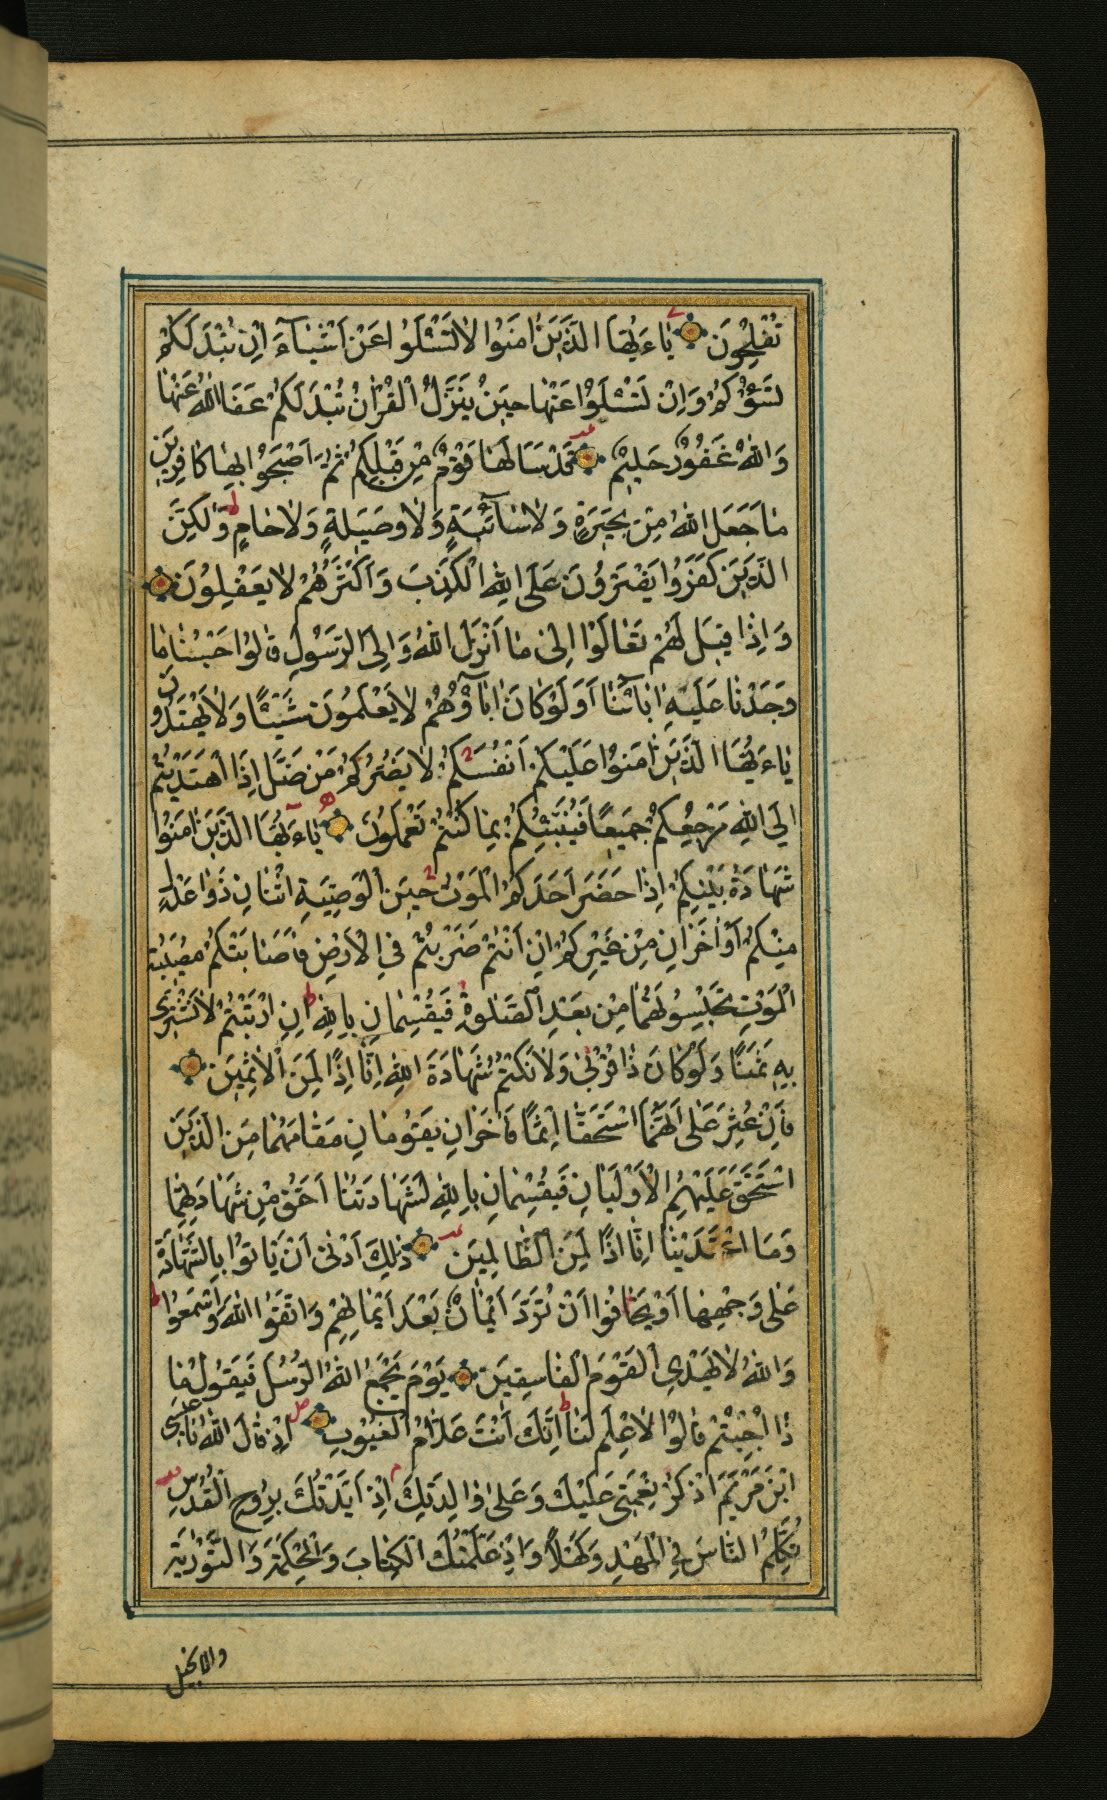 تُفْلِحُونَ يٰاءَيُّهَا الَّذِينَ اٰمَنُوا لَا تَسْئَلُوا عَنْ اَشْيٰاءَ اِنْ تُبْدَ لَكُمْ
تَسُؤْكُمْ وَاِنْ تَسْئَلُوا عَنْهٰا حِينَ يُنَزَّلُ الْقُرْاٰنُ تُبْدَ لَكُمْ عَفَا اللّٰهُ عَنْهٰا
وَاللّٰهُ غَفُورٌ حَلِيمٌ قَدْ سَاَلَهٰا قَوْمٌ مِنْ قَبْلِكُمْ ثُمَّ اَصْبَحُوا بِهٰا كٰافِرِينَ
مٰا جَعَلَ اللّٰهُ مِنْ بَحِيرَةٍ وَلٰا سٰائِبَةٍ وَلٰا وَصِيلَةٍ وَلٰا حٰامٍ وَلٰكِنَّ
الَّذِينَ كَفَرُوا يَفْتَرُونَ عَلَى اللّٰهِ الْكَذِبَ وَاَكْثَرُهُمْ لٰا يَعْقِلُونَ
وَاِذٰا قِيلَ لَهُمْ تَعٰالَوْا اِلىٰ مٰا اَنْزَلَ اللّٰهُ وَاِلَى الرَّسُولِ قٰالُوا حَسْبُنٰا مٰا
وَجَدْنٰا عَلَيْهِ اٰبٰائَنٰا اَوَلَوْ كٰانَ اٰبٰاؤُهُمْ لٰا يَعْلَمُونَ شَيْئًا وَلٰا يَهْتَدُونَ
يٰاءَيُّهَا الَّذِينَ اٰمَنُوا عَلَيْكُمْ اَنْفُسَكُمْ لٰا يَضُرُّكُمْ مَنْ ضَلَّ اِذَا اهْتَدَيْتُمْ
اِلَى اللّٰهِ مَرْجِعُكُمْ جَمِيعًا فَيُنَبِّئُكُمْ بِمٰا كُنْتُمْ تَعْمَلُونَ يٰاءَيُّهَا الَّذِينَ اٰمَنُوا
شَهٰادَةُ بَيْنِكُمْ اِذٰا حَضَرَ اَحَدَكُمُ الْمَوْتُ حِينَ الْوَصِيَّةِ اثْنٰانِ ذَوٰا عَدْلٍ
مِنْكُمْ اَوْ اٰخَرٰانِ مِنْ غَيْرِكُمْ اِنْ اَنْتُمْ ضَرَبْتُمْ فِي الْاَرْضِ فَاَصٰابَتْكُمْ مُصِيبَةُ
الْمَوْتِ تَحْبِسُونَهُمٰا مِنْ بَعْدِ الصَّلٰوةِ فَيُقْسِمٰانِ بِاللّٰهِ اِنِ ارْتَبْتُمْ لٰا نَشْتَرِي
بِهِ ثَمَنًا وَلَوْ كٰانَ ذٰا قُرْبىٰ وَلٰا نَكْتُمُ شَهٰادَةَ اللّٰهِ اِنّٰا اِذًا لَمِنَ الْاٰثِمِينَ
فَاِنْ عُثِرَ عَلىٰ اَنَّهُمَا اسْتَحَقّٰا اِثْمًا فَاٰخَرٰانِ يَقُومٰانِ مَقٰامَهُمٰا مِنَ الَّذِينَ
اسْتَحَقَّ عَلَيْهِمُ الْاَوْلَيٰانِ فَيُقْسِمٰانِ بِاللّٰهِ لَشَهٰادَتُنٰا اَحَقُّ مِنْ شَهٰادَتِهِمٰا
وَمَا اعْتَدَيْنٰا اِنّٰا اِذًا لَمِنَ الظّٰالِمِينَ ذٰلِكَ اَدْنىٰ اَنْ يَاْتُوا بِالشَّهٰادَةِ
عَلىٰ وَجْهِهٰا اَوْ يَخٰافُوا اَنْ تُرَدَّ اَيْمٰانٌ بَعْدَ اَيْمٰانِهِمْ وَاتَّقُوا اللّٰهَ وَاسْمَعُوا
وَاللّٰهُ لٰا يَهْدِي الْقَوْمَ الْفٰاسِقِينَ يَوْمَ يَجْمَعُ اللّٰهُ الرُّسُلَ فَيَقُولُ مٰا
ذٰا اُجِبْتُمْ قٰالُوا لٰا عِلْمَ لَنٰا اِنَّكَ اَنْتَ عَلّٰامُ الْغُيُوبِ اِذْ قٰالَ اللّٰهُ يٰا عِيسَى
ابْنَ مَرْيَمَ اذْكُرْ نِعْمَتِي عَلَيْكَ وَعَلىٰ وٰالِدَتِكَ اِذْ اَيَّدْتُكَ بِرُوحِ الْقُدُسِ
تُكَلِّمُ النّٰاسَ فِي الْمَهْدِ وَكَهْلًا وَاِذْ عَلَّمْتُكَ الْكِتٰابَ وَالْحِكْمَةَ وَالتَّوْرٰيةَ
والانجيل